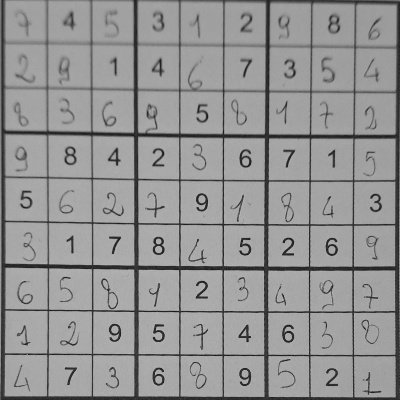 7 4 5 3 1 2 9 8 6
2 9 1 4 6 7 3 5 4
8 3 6 9 5 8 1 7 2
9 8 4 2 3 6 7 1 5
5 6 2 7 9 1 8 4 3
3 1 7 8 4 5 2 6 9
6 5 8 1 2 3 4 9 7
1 2 9 5 7 4 6 3 8
4 7 3 6 8 9 5 2 1